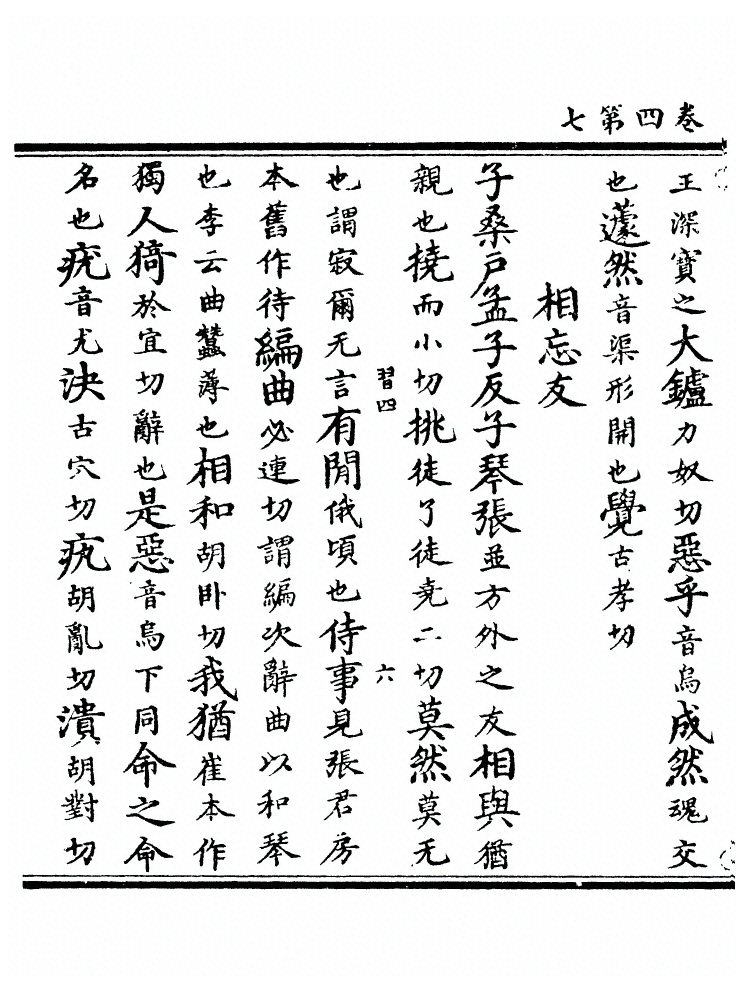 卷四第七
王深寶之大鑪力奴切惡乎音烏成然魂交
也蘧然音渠形開也覺古孝切
相忘友
子桑戶孟子反子琴張並方外之友相與猶
親也撓而小切挑徒了徒堯二切莫然莫无
習四
六
也謂寂爾无言有閒俄頃也侍事見張君房
本舊作待編曲必連切謂編次辭曲以和琴
也李云曲蠶薄也相和胡卧切我猶崔本作
獨人猗於宜切辭也是惡音烏下同命之命
名也疣音尤決古穴切𤴯胡亂切潰胡對切